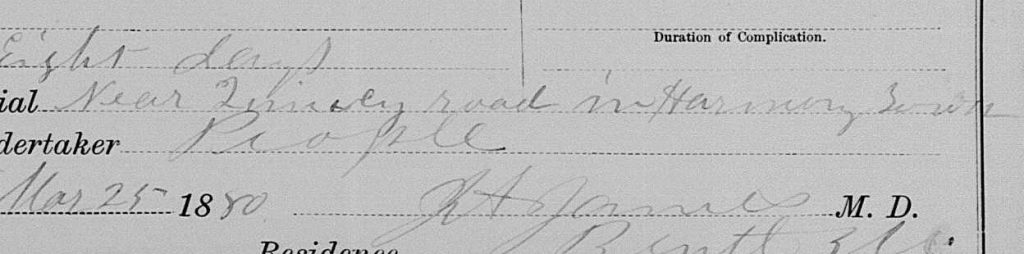 Duration of Complication.
Eight days
ial Near Quincey road in Harmony Town
dertaker People
Mar 25 1880 James M. D.
Residence